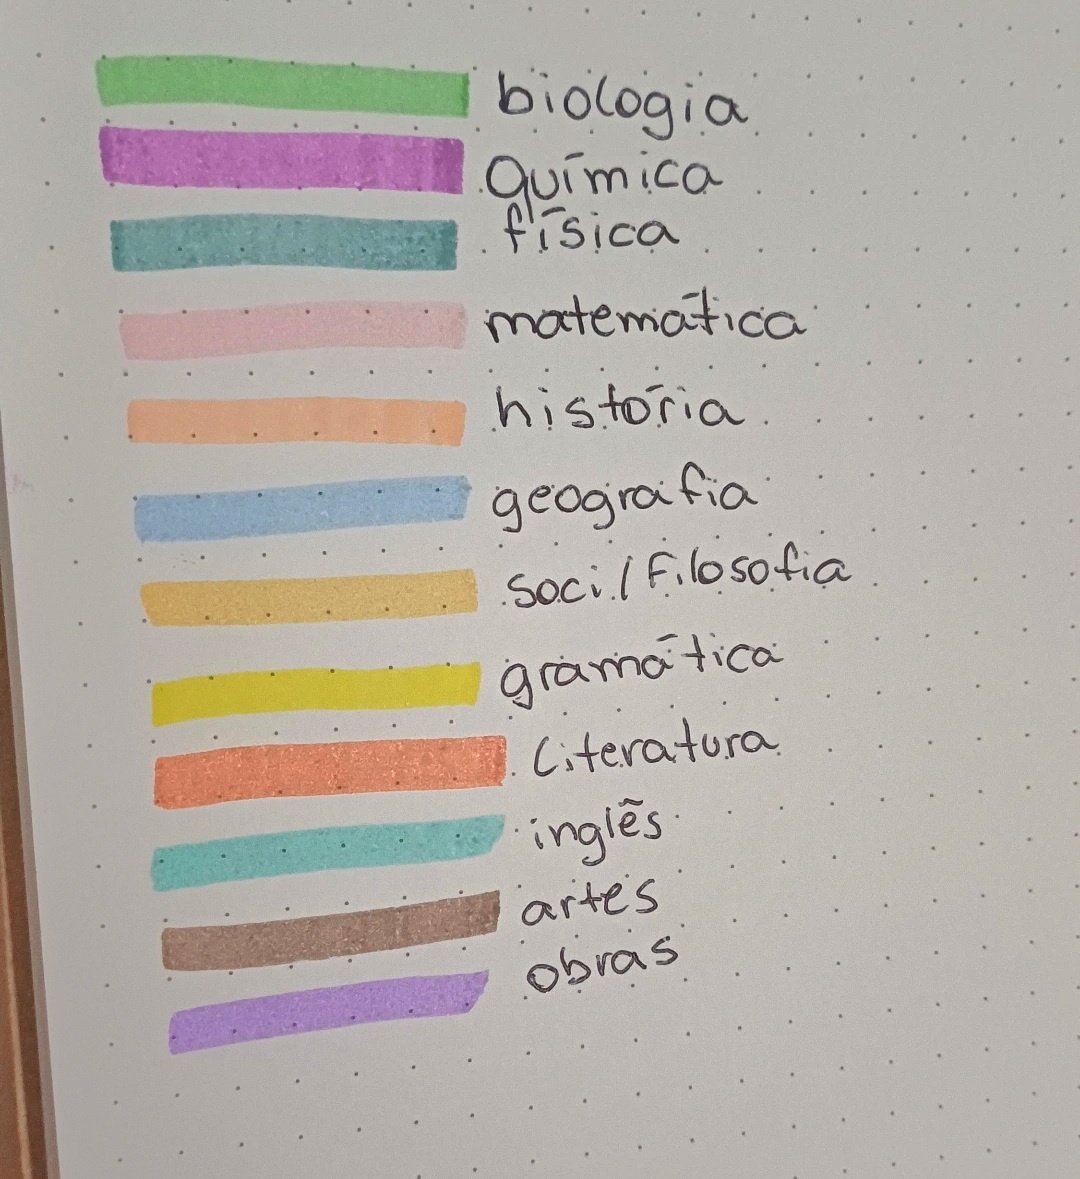 biologia
Química
física
matemática
história
geografia
soci/filosofia
gramática
literatura
inglês
artes
obras